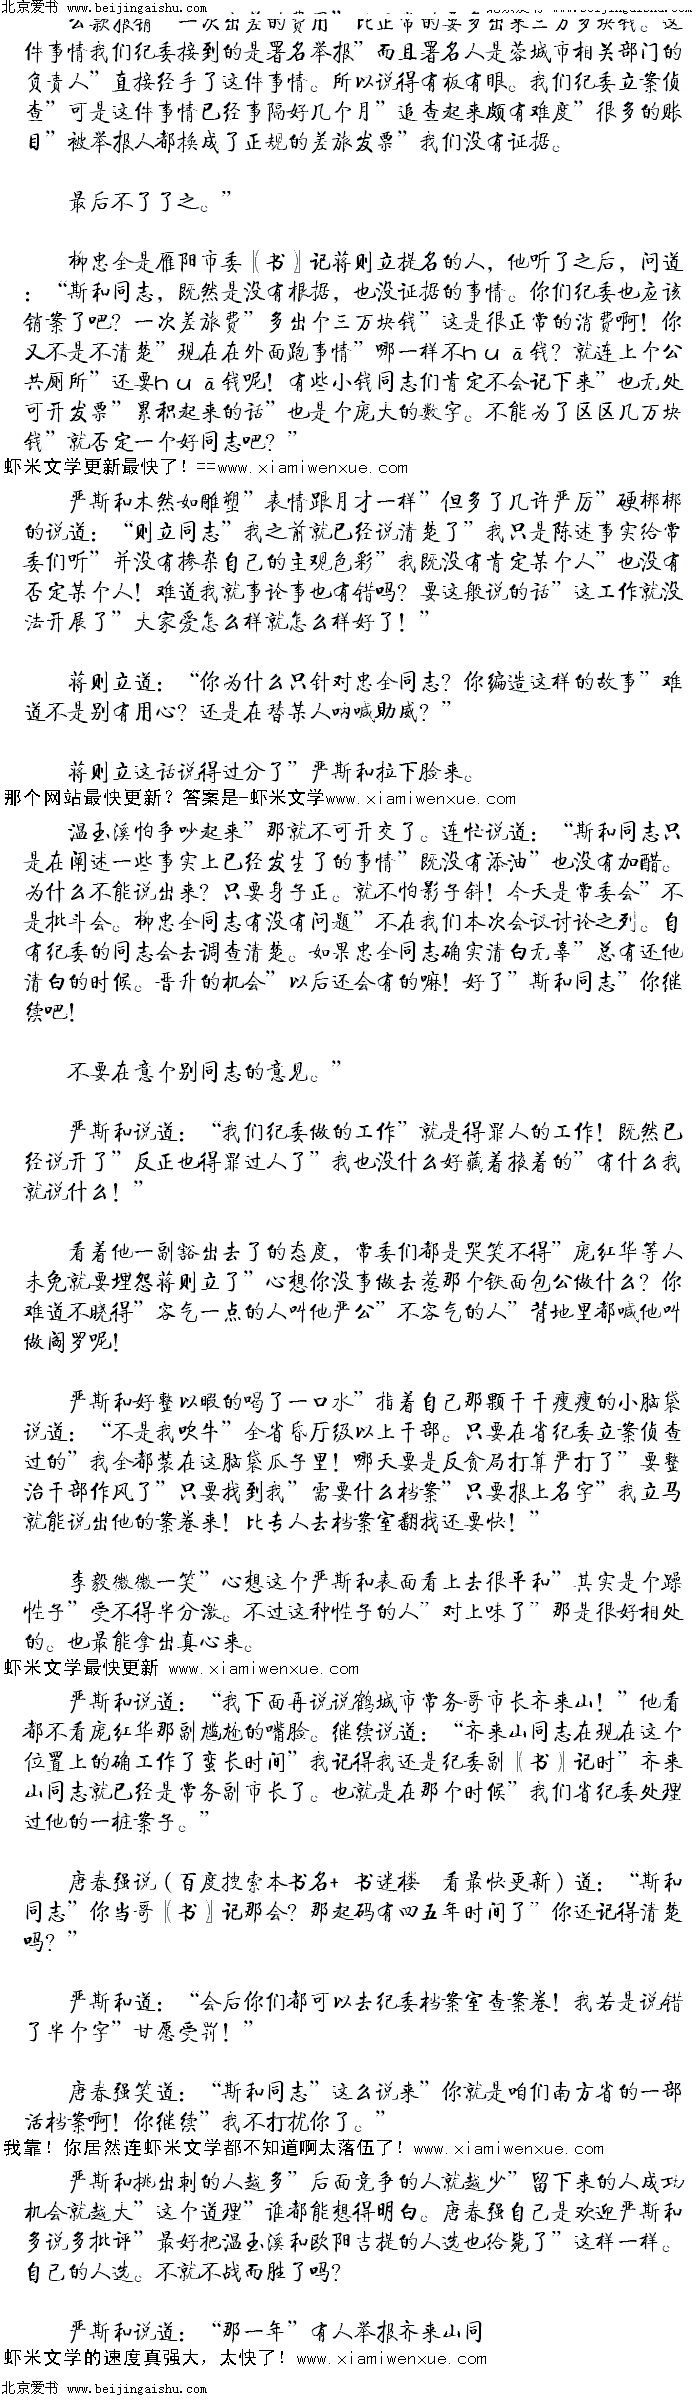 北京爱书 www.beijingaishu.com
北京爱书 www.beijingaishu.com
公款报销”一次出差的费用”比正常的要多出来三万多块钱。这
件事情我们纪委接到的是署名举报”而且署名人是蓉城市相关部门的
负责人”直接经手了这件事情。所以说得有板有眼。我们纪委立案侦
查”可是这件事情已经事隔好几个月”追查起来颇有难度”很多的账
目”被举报人都换成了正规的差旅发票”我们没有证据。
最后不了了之。”
柳忠全是雁阳市委〖书〗记蒋则立提名的人，他听了之后，问道
：“斯和同志，既然是没有根据，也没证据的事情。你们纪委也应该
销案了吧？一次差旅费”多出个三万块钱”这是很正常的消费啊！你
又不是不清楚”现在在外面跑事情”哪一样不huā钱？就连上个公
共厕所”还要huā钱呢！有些小钱同志们肯定不会记下来”也无处
可开发票”累积起来的话”也是个庞大的数字。不能为了区区几万块
钱”就否定一个好同志吧？”
虾米文学更新最快了！==www.xiamiwenxue.com
严斯和木然如雕塑”表情跟月才一样”但多了几许严厉”硬梆梆
的说道：“则立同志”我之前就已经说清楚了”我只是陈述事实给常
委们听”并没有掺杂自己的主观色彩”我既没有肯定某个人”也没有
否定某个人！难道我就事论事也有错吗？要这般说的话”这工作就没
法开展了”大家爱怎么样就怎么样好了！”
蒋则立道：“你为什么只针对忠全同志？你编造这样的故事”难
道不是别有用心？还是在替某人呐喊助威？”
蒋则立这话说得过分了”严斯和拉下脸来。
那个网站最快更新？答案是-虾米文学www.xiamiwenxue.com
温玉溪怕争吵起来”那就不可开交了。连忙说道：“斯和同志只
是在阐述一些事实上已经发生了的事情”既没有添油”也没有加醋。
为什么不能说出来？只要身子正。就不怕影子斜！今天是常委会”不
是批斗会。柳忠全同志有没有问题”不在我们本次会议讨论之列。自
有纪委的同志会去调查清楚。如果忠全同志确实清白无辜”总有还他
清白的时候。晋升的机会”以后还会有的嘛！好了”斯和同志”你继
续吧！
不要在意个别同志的意见。”
严斯和说道：“我们纪委做的工作”就是得罪人的工作！既然已
经说开了”反正也得罪过人了”我也没什么好藏着掖着的”有什么我
就说什么！”
看着他一副豁出去了的态度，常委们都是哭笑不得”庞红华等人
未免就要埋怨蒋则立了”心想你没事做去惹那个铁面包公做什么？你
难道不晓得”客气一点的人叫他严公”不客气的人”背地里都喊他叫
做阎罗呢！
严斯和好整以暇的喝了一口水”指着自己那颗干干瘦瘦的小脑袋
说道：“不是我吹牛”全省昏厅级以上干部。只要在省纪委立案侦查
过的”我全都装在这脑袋瓜子里！哪天要是反贪局打算严打了”要整
治干部作风了”只要找到我”需要什么档案”只要报上名字”我立马
就能说出他的案卷来！比专人去档案室翻找还要快！”
李毅微微一笑”心想这个严斯和表面看上去很平和”其实是个躁
性子”受不得半分激。不过这种性子的人”对上味了”那是很好相处
的。也最能拿出真心来。
虾米文学最快更新 www.xiamiwenxue.com
严斯和说道：“我下面再说说鹤城市常务哥市长齐来山！”他看
都不看庞红华那副尴尬的嘴脸。继续说道：“齐来山同志在现在这个
位置上的确工作了蛮长时间”我记得我还是纪委副〖书〗记时”齐来
山同志就已经是常务副市长了。也就是在那个时候”我们省纪委处理
过他的一桩案子。”
唐春强说（百度搜索本书名+ 书迷楼 看最快更新）道：“斯和
同志”你当哥〖书〗记那会？那起码有四五年时间了”你还记得清楚
吗？”
严斯和道：“会后你们都可以去纪委档案室查案卷！我若是说错
了半个字”甘愿受罚！”
唐春强笑道：“斯和同志”这么说来”你就是咱们南方省的一部
活档案啊！你继续”我不打扰你了。”
我靠！你居然连虾米文学都不知道啊太落伍了！www.xiamiwenxue.com
严斯和挑出刺的人越多”后面竞争的人就越少”留下来的人成功
机会就越大”这个道理”谁都能想得明白。唐春强自己是欢迎严斯和
多说多批评”最好把温玉溪和欧阳吉提的人选也给毙了”这样一样。
自己的人选。不就不战而胜了吗？
严斯和说道：“那一年”有人举报齐来山同
虾米文学的速度真强大，太快了！www.xiamiwenxue.com
北京爱书 www.beijingaishu.com